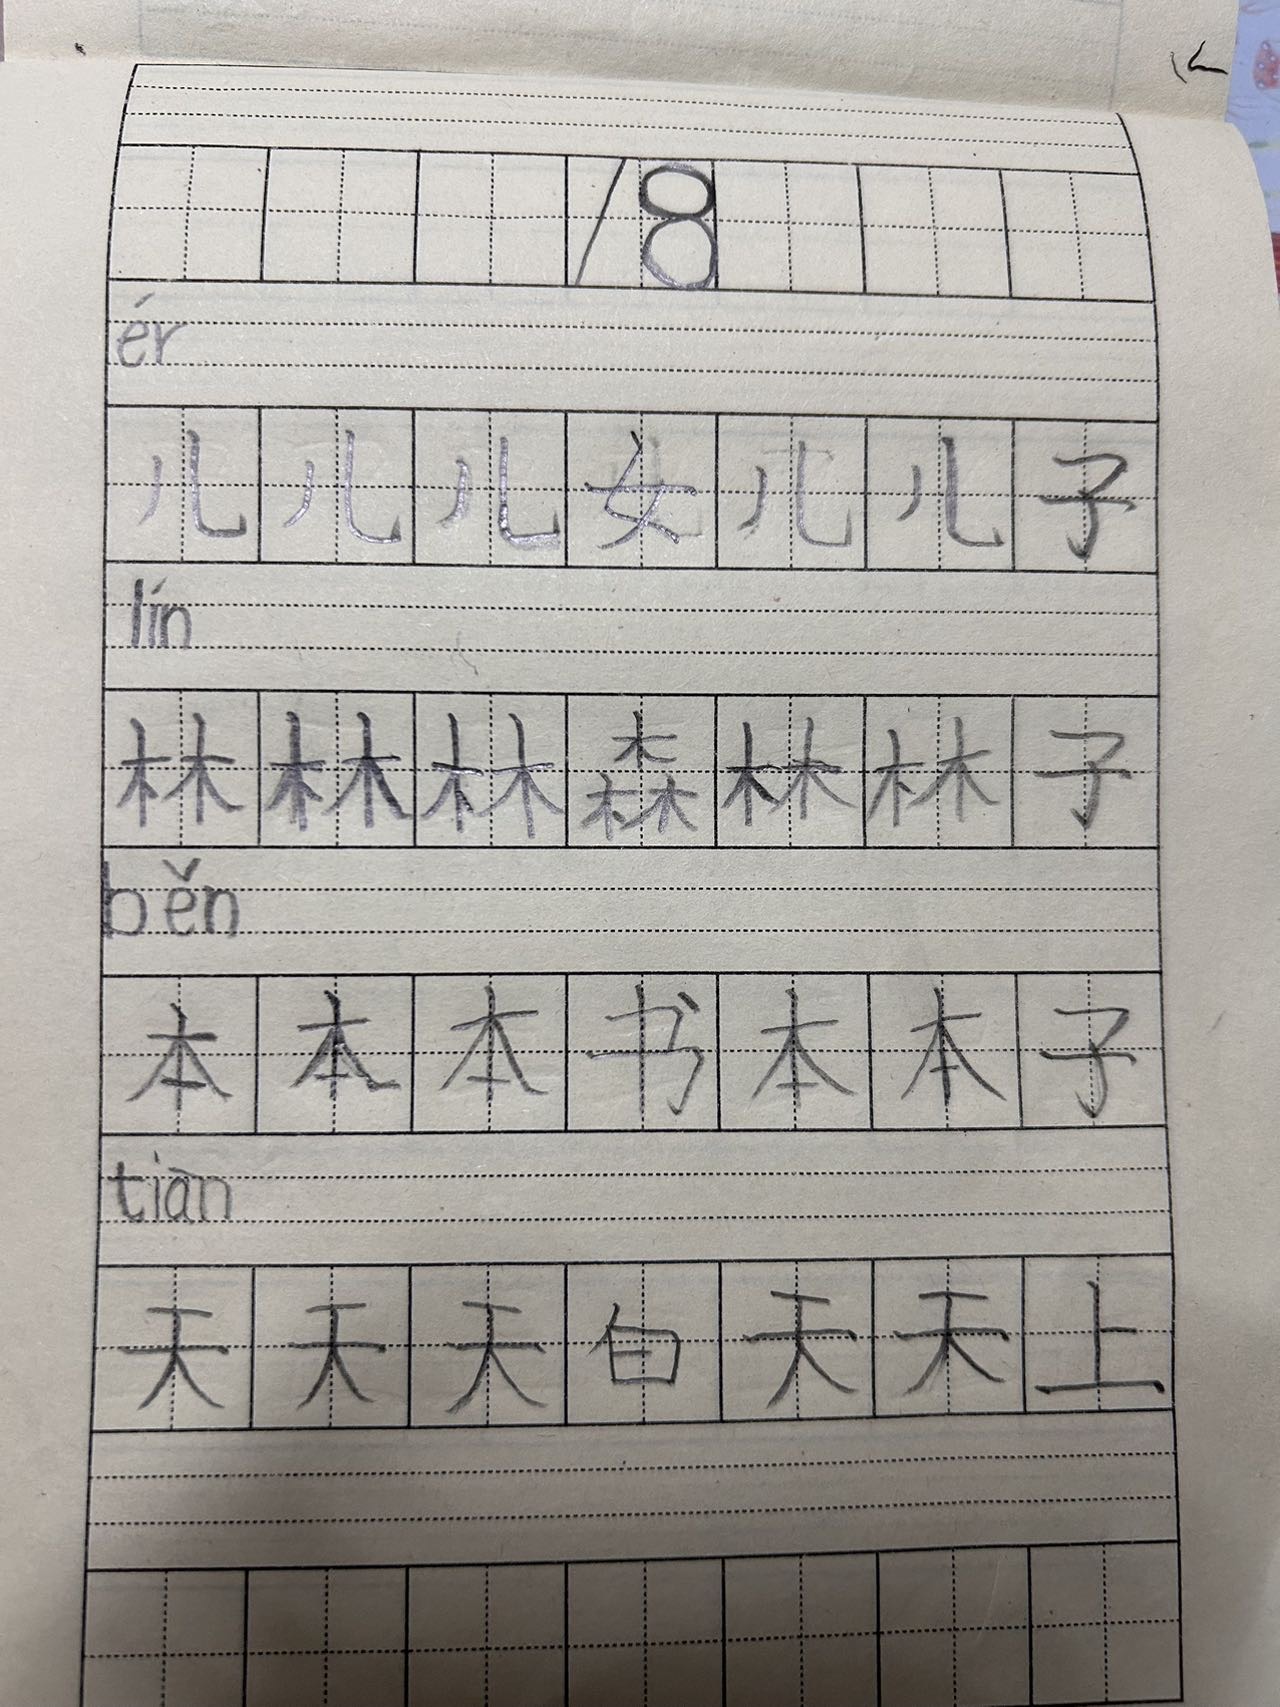 18
ér
儿儿儿女儿儿子
lín
林林林森林林子
běn
本本本书本本子
tiān
天天天白天天上